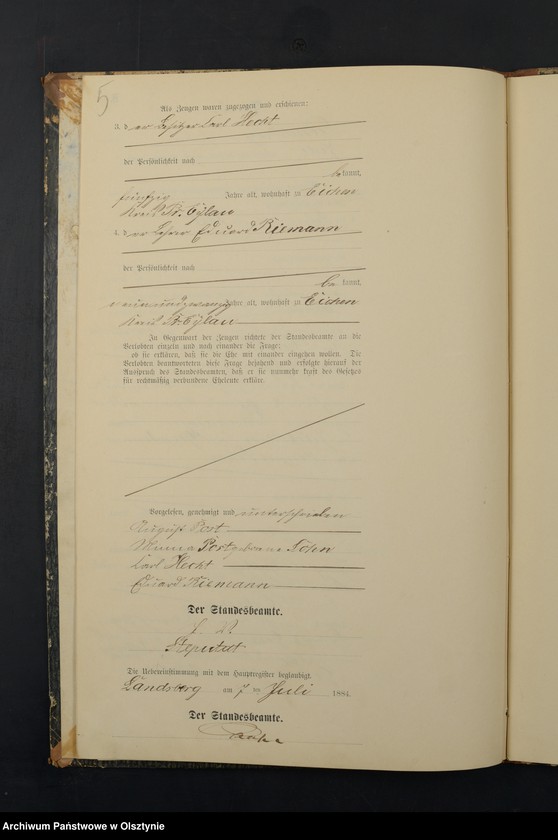 5
Als Zeugen waren zugezogen und erschienen:
3. der Besitzer Carl Hecht
der Persönlichkeit nach
be kannt,
fünfzig Jahre alt, wohnhaft zu Eichen
Kreis Pr. Eylau
4. der Lehrer Eduard Riemann
der Persönlichkeit nach
be kannt,
einundzwanzig Jahre alt, wohnhaft zu Eichen
Kreis Pr. Eylau
In Gegenwart der Zeugen richtete der Standesbeamte an die
Verlobten einzeln und nach einander die Frage:
ob sie erklären, daß sie die Ehe mit einander eingehen wollen. Die
Verlobten beantworteten diese Frage bejahend und erfolgte hierauf der
Ausspruch des Standesbeamten, daß er sie nunmehr kraft des Gesetzes
für rechtmäßig verbundene Eheleute erkläre.
Vorgelesen, genehmigt und unterschrieben
August Post
Post geborene
Carl Hecht
Eduard Riemann
Der Standesbeamte.
Die Uebereinstimmung mit dem Hauptregister beglaubigt.
Landsberg am 7 ten Juli 1884
Der Standesbeamte.
Archiwum Państwowe w Olsztynie